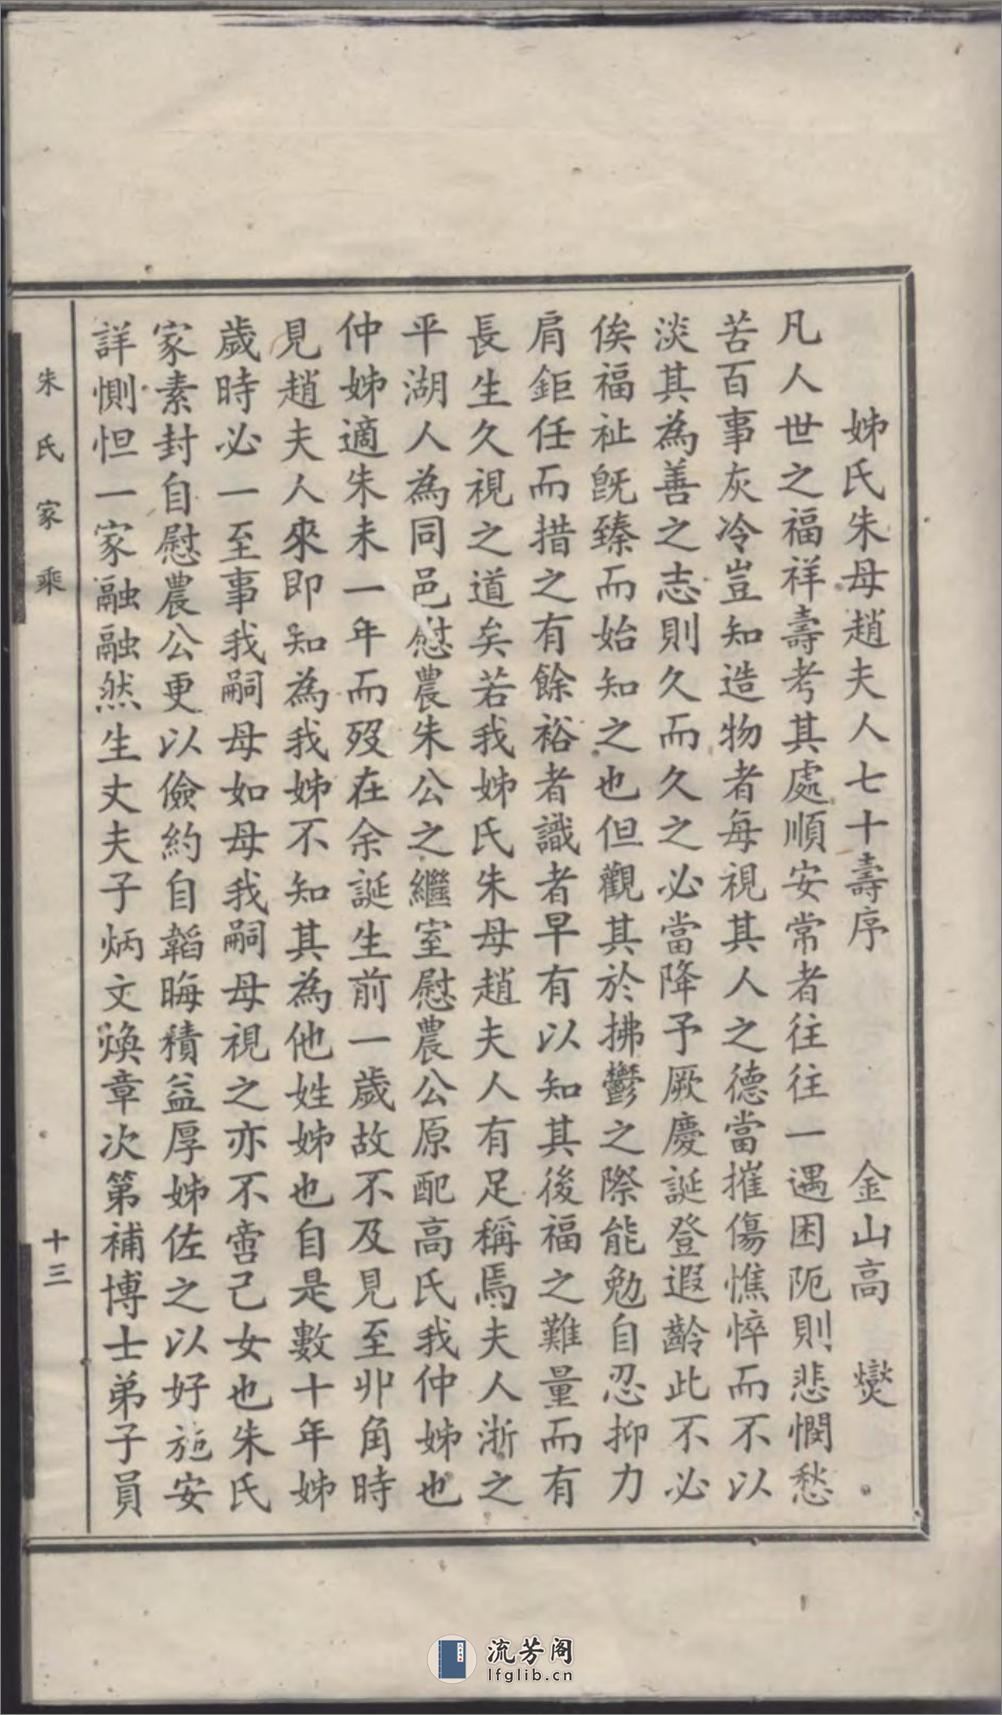 姊氏朱母趙夫人七十壽序　　金山高　燮
凡人世之福祥壽考其處順安常者往往一遇困阨則悲憫愁
苦百事灰冷豈知造物者每視其人之德當摧傷憔悴而不以
淡其為善之志則久而久之必當降予厥慶誕登遐齡此不必
俟福祉既臻而始知之也但觀其於拂鬱之際能勉自忍抑力
肩鉅任而措之有餘裕者識者早有以知其後福之難量而有
長生久視之道矣若我姊氏朱母趙夫人有足稱焉夫人浙之
平湖人為同邑慰農朱公之繼室慰農公原配高氏我仲姊也
仲姊適朱未一年而歿在余誕生前一歲故不及見至丱角時
見趙夫人來即知為我姊不知其為他姓姊也自是數十年姊
歲時必一至事我嗣母如母我嗣母視之亦不啻己女也朱氏
家素封自慰農公更以儉約自韜晦積益厚姊佐之以好施安
詳惻怛一家融融然生丈夫子炳文煥章次第補博士弟子員
朱氏家乘
十三
流芳阁
lfglib.cn